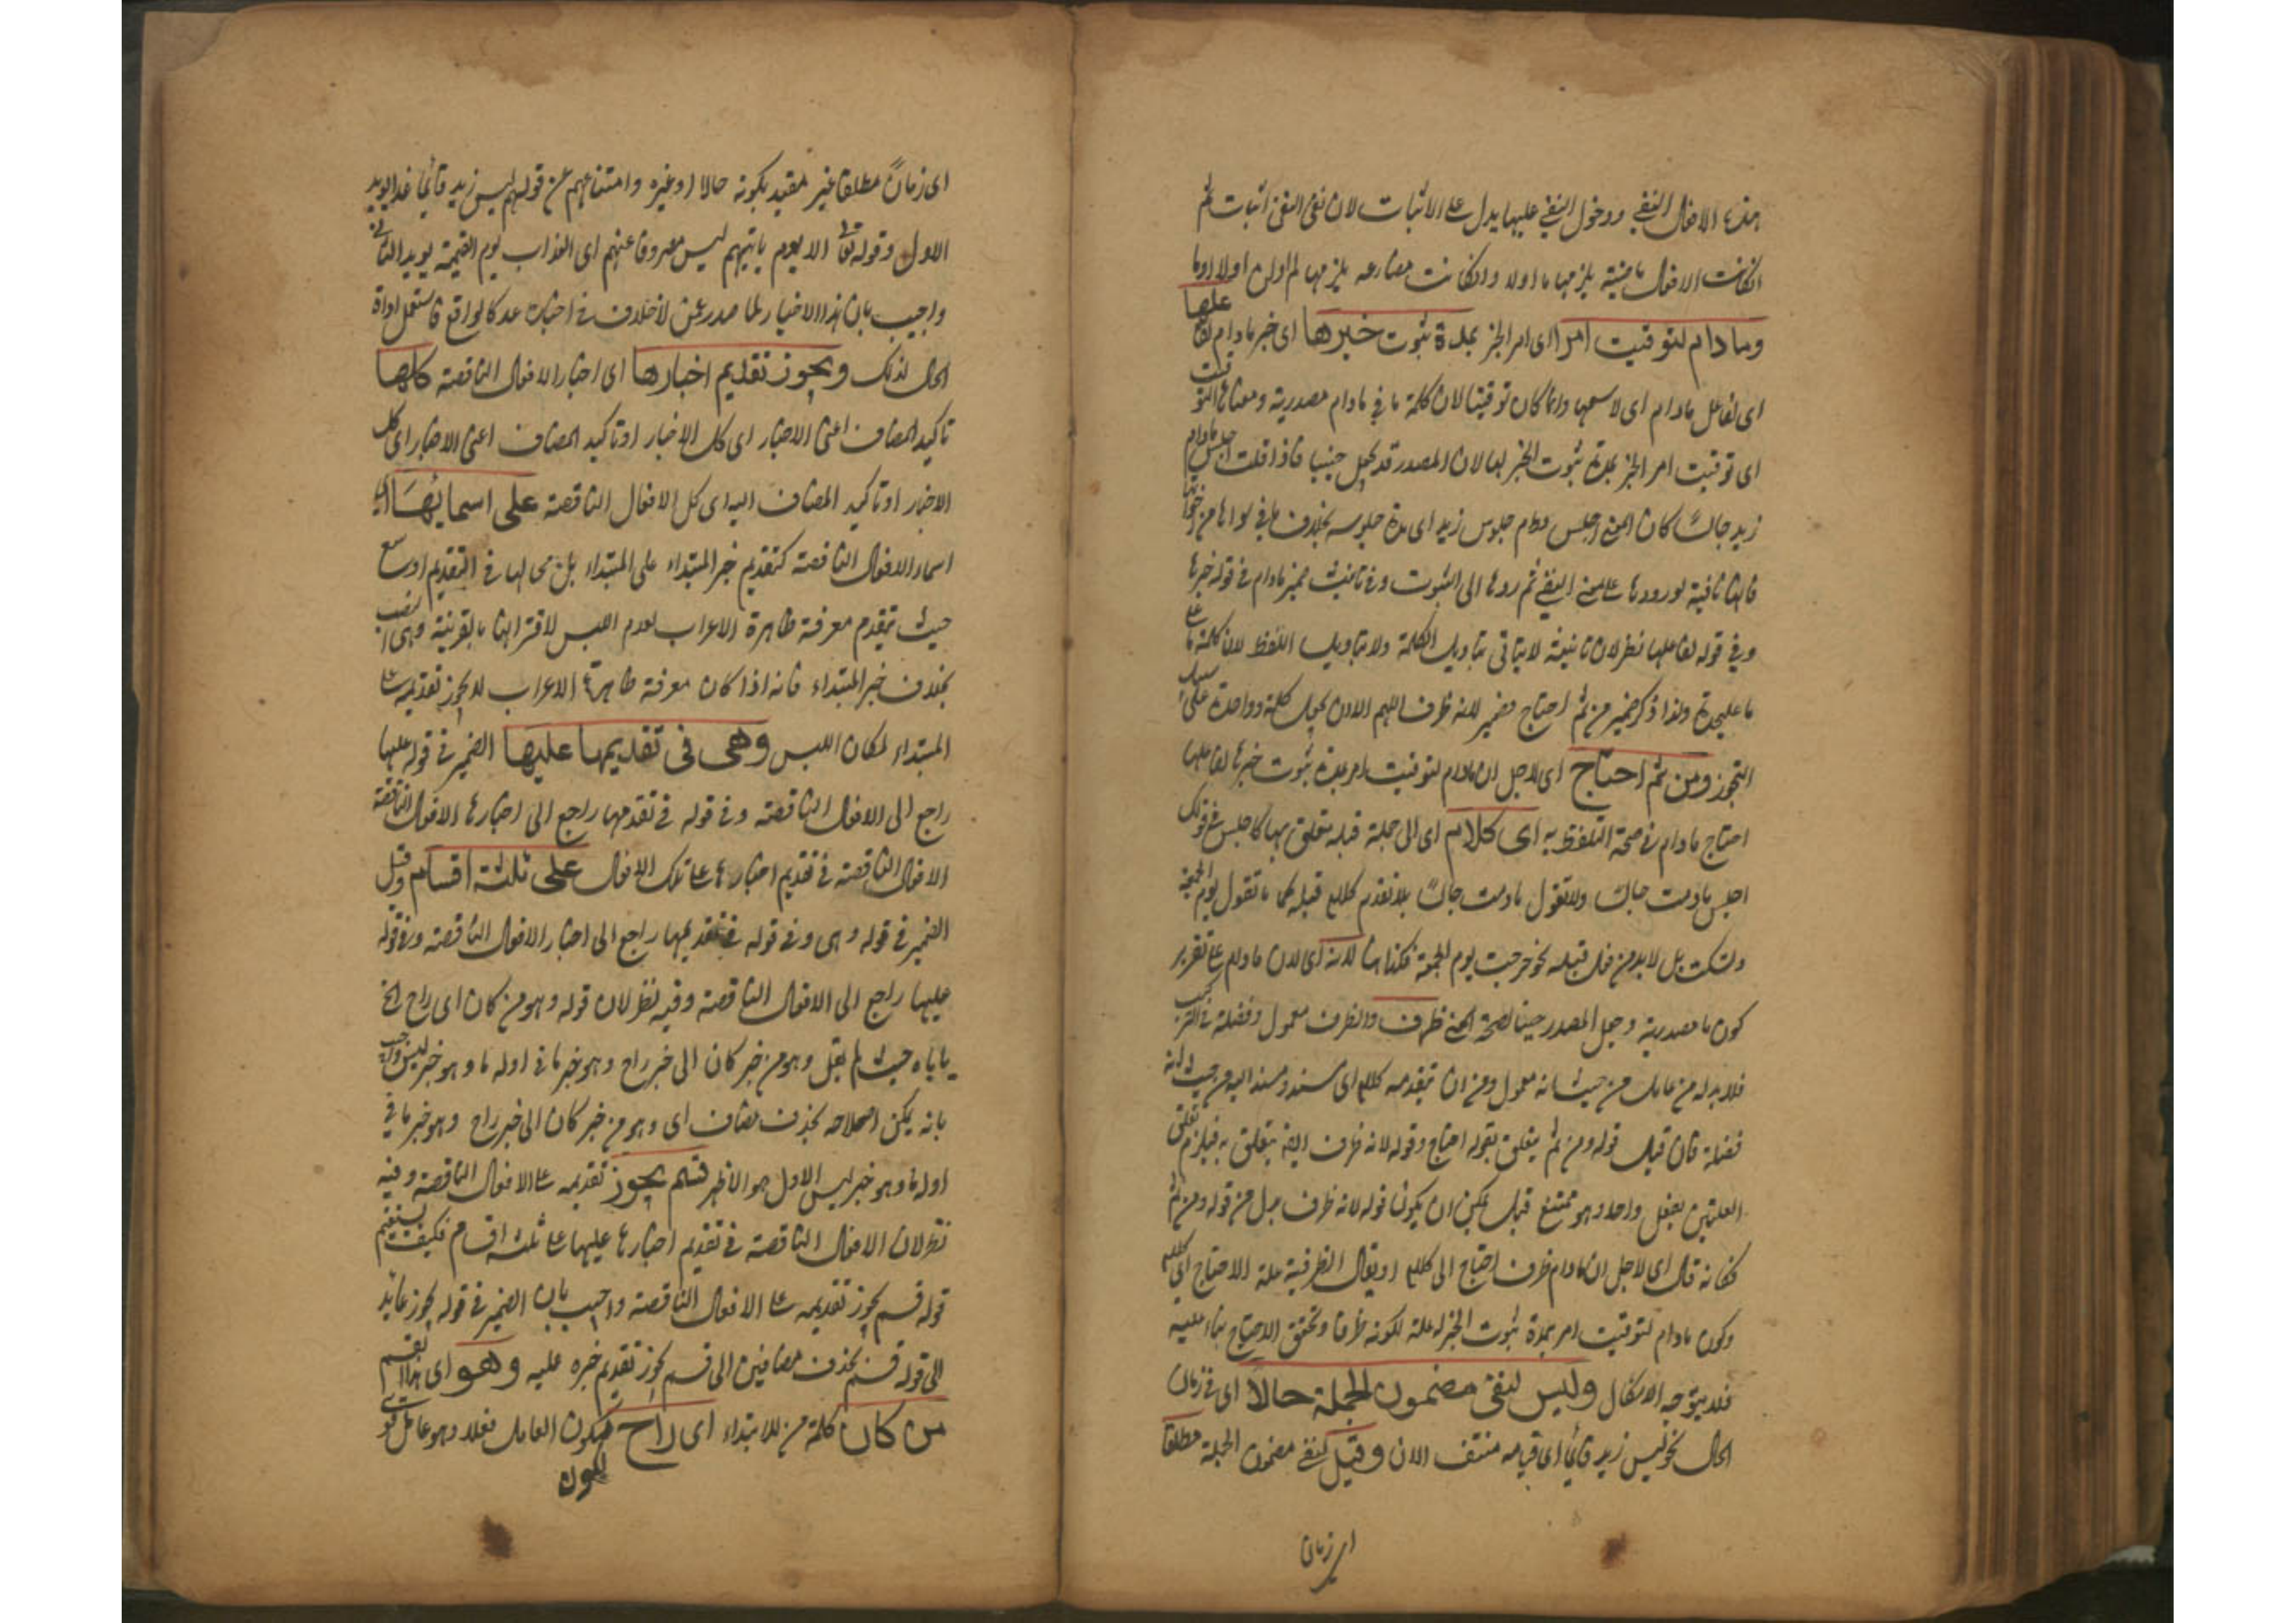 هذه الافعال النفي ودخول النفي عليها يدل على الاثبات لان نفي النفي اثبات ثم
انكانت الافعال ماضية يلزمها ما اولا وانكانت مضارعه يلزمها لم اولن اولا اوما
وما دام لتوقيت امر اى امر الخبر بمدة ثبوت خبرها اى خبر مادام لفاعلها
اى لفاعل مادام اى لاسمها وانما كان توقيتا لان كلمة ما في مادام مصدرية ومعناها التوقيت
اى توقيت امر الخبر بمدة ثبوت الخبر لها لان المصدر قد يجعل حينيا فاذا قلت اجلس مادام
زيد جالسا كان المعنى اجلس دوام جلوس زيد اى مدة جلوسه بخلاف ما في سواها من اخواتها
فانها نافية لورودها على معنى النفي ثم ردها الى الثبوت وفي تانيث ضمير مادام في قوله خبرها
وفي قوله لفاعلها نظر لان تانيثه لا يتاتى بتاويل الكلمة ولا بتاويل اللفظ لان كلمة ما
ما عليحدة ولذا ذكر ضمير من ثم احتاج وضمير لانه ظرف اللهم الا ان يجعل كلمة واحدة على سبيل
التجوز ومن ثم احتاج اى لاجل ان مادام لتوقيت امر بمدة ثبوت خبرها لفاعلها
احتاج مادام في صحة التلفظ به اى كلام اى الى جملة قبله يتعلق بها كاجلس في قولك
اجلس مادمت جالسا ولا تقول مادمت جالسا بلا تقدم كلام قبله كما لا تقول يوم الجمعة
وتسكت بل لا بد من فعل قبله نحو خرجت يوم الجمعة فكذا هنا لانه اى لان مادام على تقدير
كون ما مصدرية وجعل المصدر حينا لصحة المعنى ظرف والظرف معمول وفضلة في التركيب
فلا بد له من عامل من حيث انه معمول ومن ان يتقدمه كلام اى مسند ومسند اليه من حيث انه
فضلة فان قيل قوله ومن ثم يتعلق بقوله احتاج وقوله لانه ظرف ايضا يتعلق به فيلزم تعلق
العلتين بفعل واحد وهو ممتنع قيل يمكن ان يكون قوله لانه ظرف بدل من قوله ومن ثم
فكانه قال اى لاجل ان مادام ظرف احتاج الى كلام او يقال الظرفية علة الاحتياج الى كلام
وكون مادام لتوقيت امر بمدة ثبوت الخبر له علة لكونه ظرفا وتحقق الاحتياج بناء عليه
فلا يتوجه الاشكال وليس لنفي مضمون الجملة حالا اى في زمان
الحال نحو ليس زيد قائما اى قيامه منتف الان وقيل لنفي مضمون الجملة مطلقا
اى زمان
اى زمانا مطلقا غير مقيد بكونه حالا او غيره وامتناعهم عن قولهم ليس زيد قائما غدا يويد
الاول وقوله تعالى الا يوم ياتيهم ليس مصروفا عنهم اى العذاب يوم القيمة يويد الثاني
واجيب بان هذا الاخبار لما صدر عمن لا خلاف في اخباره عد كالواقع فاستعمل اداة
الحال لذلك ويجوز تقديم اخبارها اى اخبار الافعال الناقصة كلها
تاكيد المضاف اعنى الاخبار اى كل الاخبار او تاكيد المضاف اعنى الاخبار اى كل
الاخبار او تاكيد المضاف اليه اى كل الافعال الناقصة على اسمائها اى
اسماء الافعال الناقصة كتقديم خبر المبتداء على المبتداء بل هى لها في التقديم اوسع
حيث تقدم معرفة ظاهرة الاعراب لعدم اللبس لاقترانها بالقرينة وهى النصب
بخلاف خبر المبتداء فانه اذا كان معرفة ظاهرة الاعراب لا يجوز تقديمه على
المبتداء لمكان اللبس وهى فى تقديمها عليها الضمير في قوله عليها
راجع الى الافعال الناقصة وفي قوله في تقدمها راجع الى اخبارها الافعال الناقصة
الافعال الناقصة في تقديم اخبارها على تلك الافعال على ثلثة اقسام وقيل
الضمير في قوله وهى وفي قوله في تقديمها راجع الى اخبار الافعال الناقصة وفي قوله
عليها راجع الى الافعال الناقصة وفيه نظر لان قوله وهو من كان اى راح الخ
ياباه حيث لم يقل وهو من خبر كان الى خبر راح وهو خبر ما في اوله ما وهو خبر ليس واجيب
بانه يمكن اصلاحه بحذف مضاف اى وهو من خبر كان الى خبر راح وهو خبر ما في
اوله ما وهو خبر ليس الاول هو الاظهر قسم يجوز تقديمه على الافعال الناقصة وفيه
نظر لان الافعال الناقصة في تقديم اخبارها عليها على ثلثة اقسام فكيف يستقيم
قوله قسم يجوز تقديمه على الافعال الناقصة واجيب بان الضمير في قوله يجوز عايد
الى قوله قسم بحذف مضافين الى قسم يجوز تقديم خبره عليه وهو اى هذا القسم
من كان كلمة من للابتداء اى راح لكون العامل فعلا وهو عامل قوى
لكون